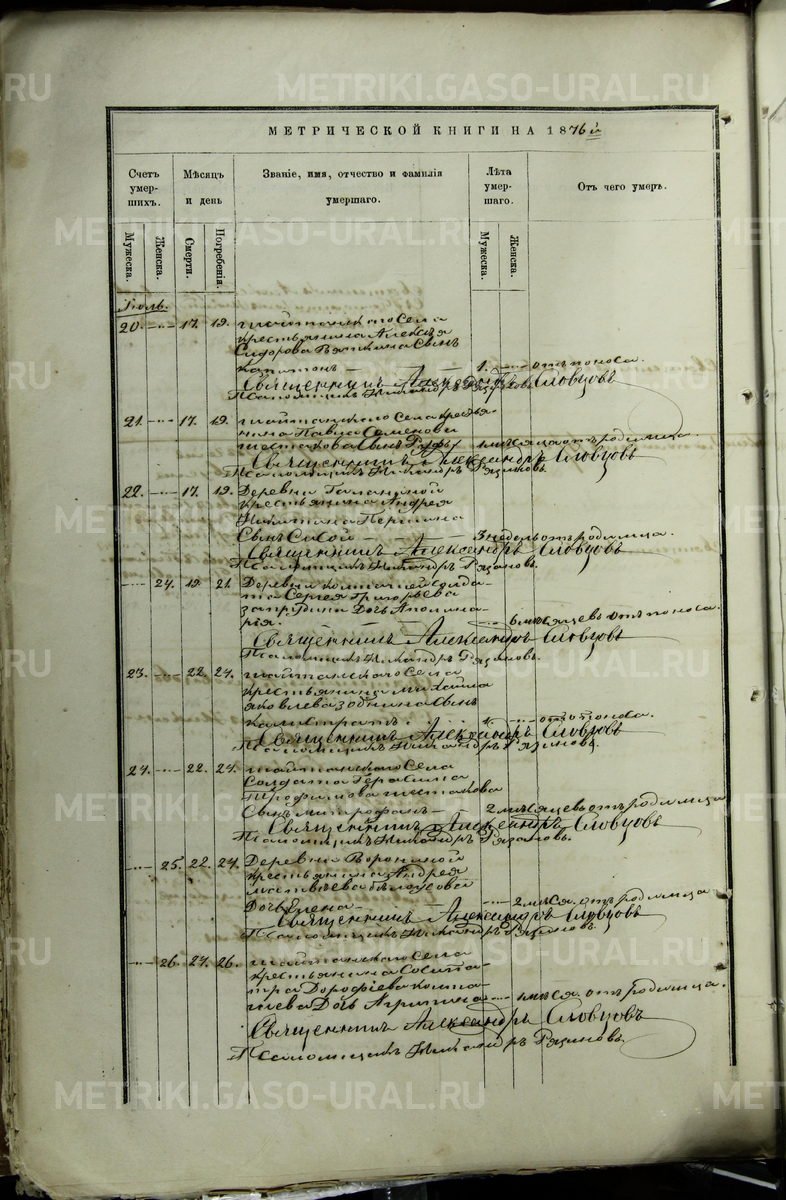 МЕТРИЧЕСКОЙ КНИГИ НА 1876 й
Счетъ умер-шихъ.
Мѣсяцъ и день
Званіе, имя, отчество и фамилія умершаго.
Лѣта умер-шаго.
Отъ чего умеръ.
Мужеска.
Женска.
Смерти.
Погребенія.
Мужеска.
Женска.
Іюль.
20. 17. 19. Шайтанскаго Села
крестьянина Алексѣя
Сидорова Вяткина Сынъ
Капитонъ 1. отъ поноса.
Священникъ Александръ Словцовъ
Псаломщикъ Никандръ Рязановъ.
21. 17. 19. Шайтанскаго Села кресть-
янина Павла Семенова
Шестакова Сынъ 1 мѣсяца отъ родимца.
Священникъ Александръ Словцовъ
Псаломщикъ Никандръ Рязановъ.
22. 17. 19. Деревни
крестьянина Андрея
Никитина Першина
Сынъ Сисой 3 недель отъ родимца.
Священникъ Александръ Словцовъ
Псаломщикъ Никандръ Рязановъ.
24. 19. 21. Деревни Солда-
та Сергея Григорьева
Запрудина Дочь Аполина-
рія. 6 мѣсяцевъ отъ поноса.
Священникъ Александръ Словцовъ
Псаломщикъ Никандръ Рязановъ.
23. 22. 24. Шайтанскаго Села
крестьянина Михаила
Яковлева Зобнина Сынъ
Калистратъ 1. отъ поноса.
Священникъ Александръ Словцовъ
Псаломщикъ Никандръ Рязановъ.
24. 22. 24. Шайтанскаго Села
Солдата Герасима
Трофимова Шестакова
Сынъ Митрофанъ 2 мѣсяцевъ отъ родимца
Священникъ Александръ Словцовъ
Псаломщикъ Никандръ Рязановъ.
25. 22. 24. Деревни Ворониной
крестьянина Андрея
Матвѣева Бѣлоусова
Дочь Елена 2 мѣся. отъ родимца
Священникъ Александръ Словцовъ
Псаломщикъ Никандръ Рязановъ.
26. 24. 26. Шайтанскаго Села
крестьянина Сосипа-
тра Дорофѣева
Дочь 1 мѣся. отъ родимца.
Священникъ Александръ Словцовъ
Псаломщикъ Никандръ Рязановъ.
METRIKI.GASO-URAL.RU